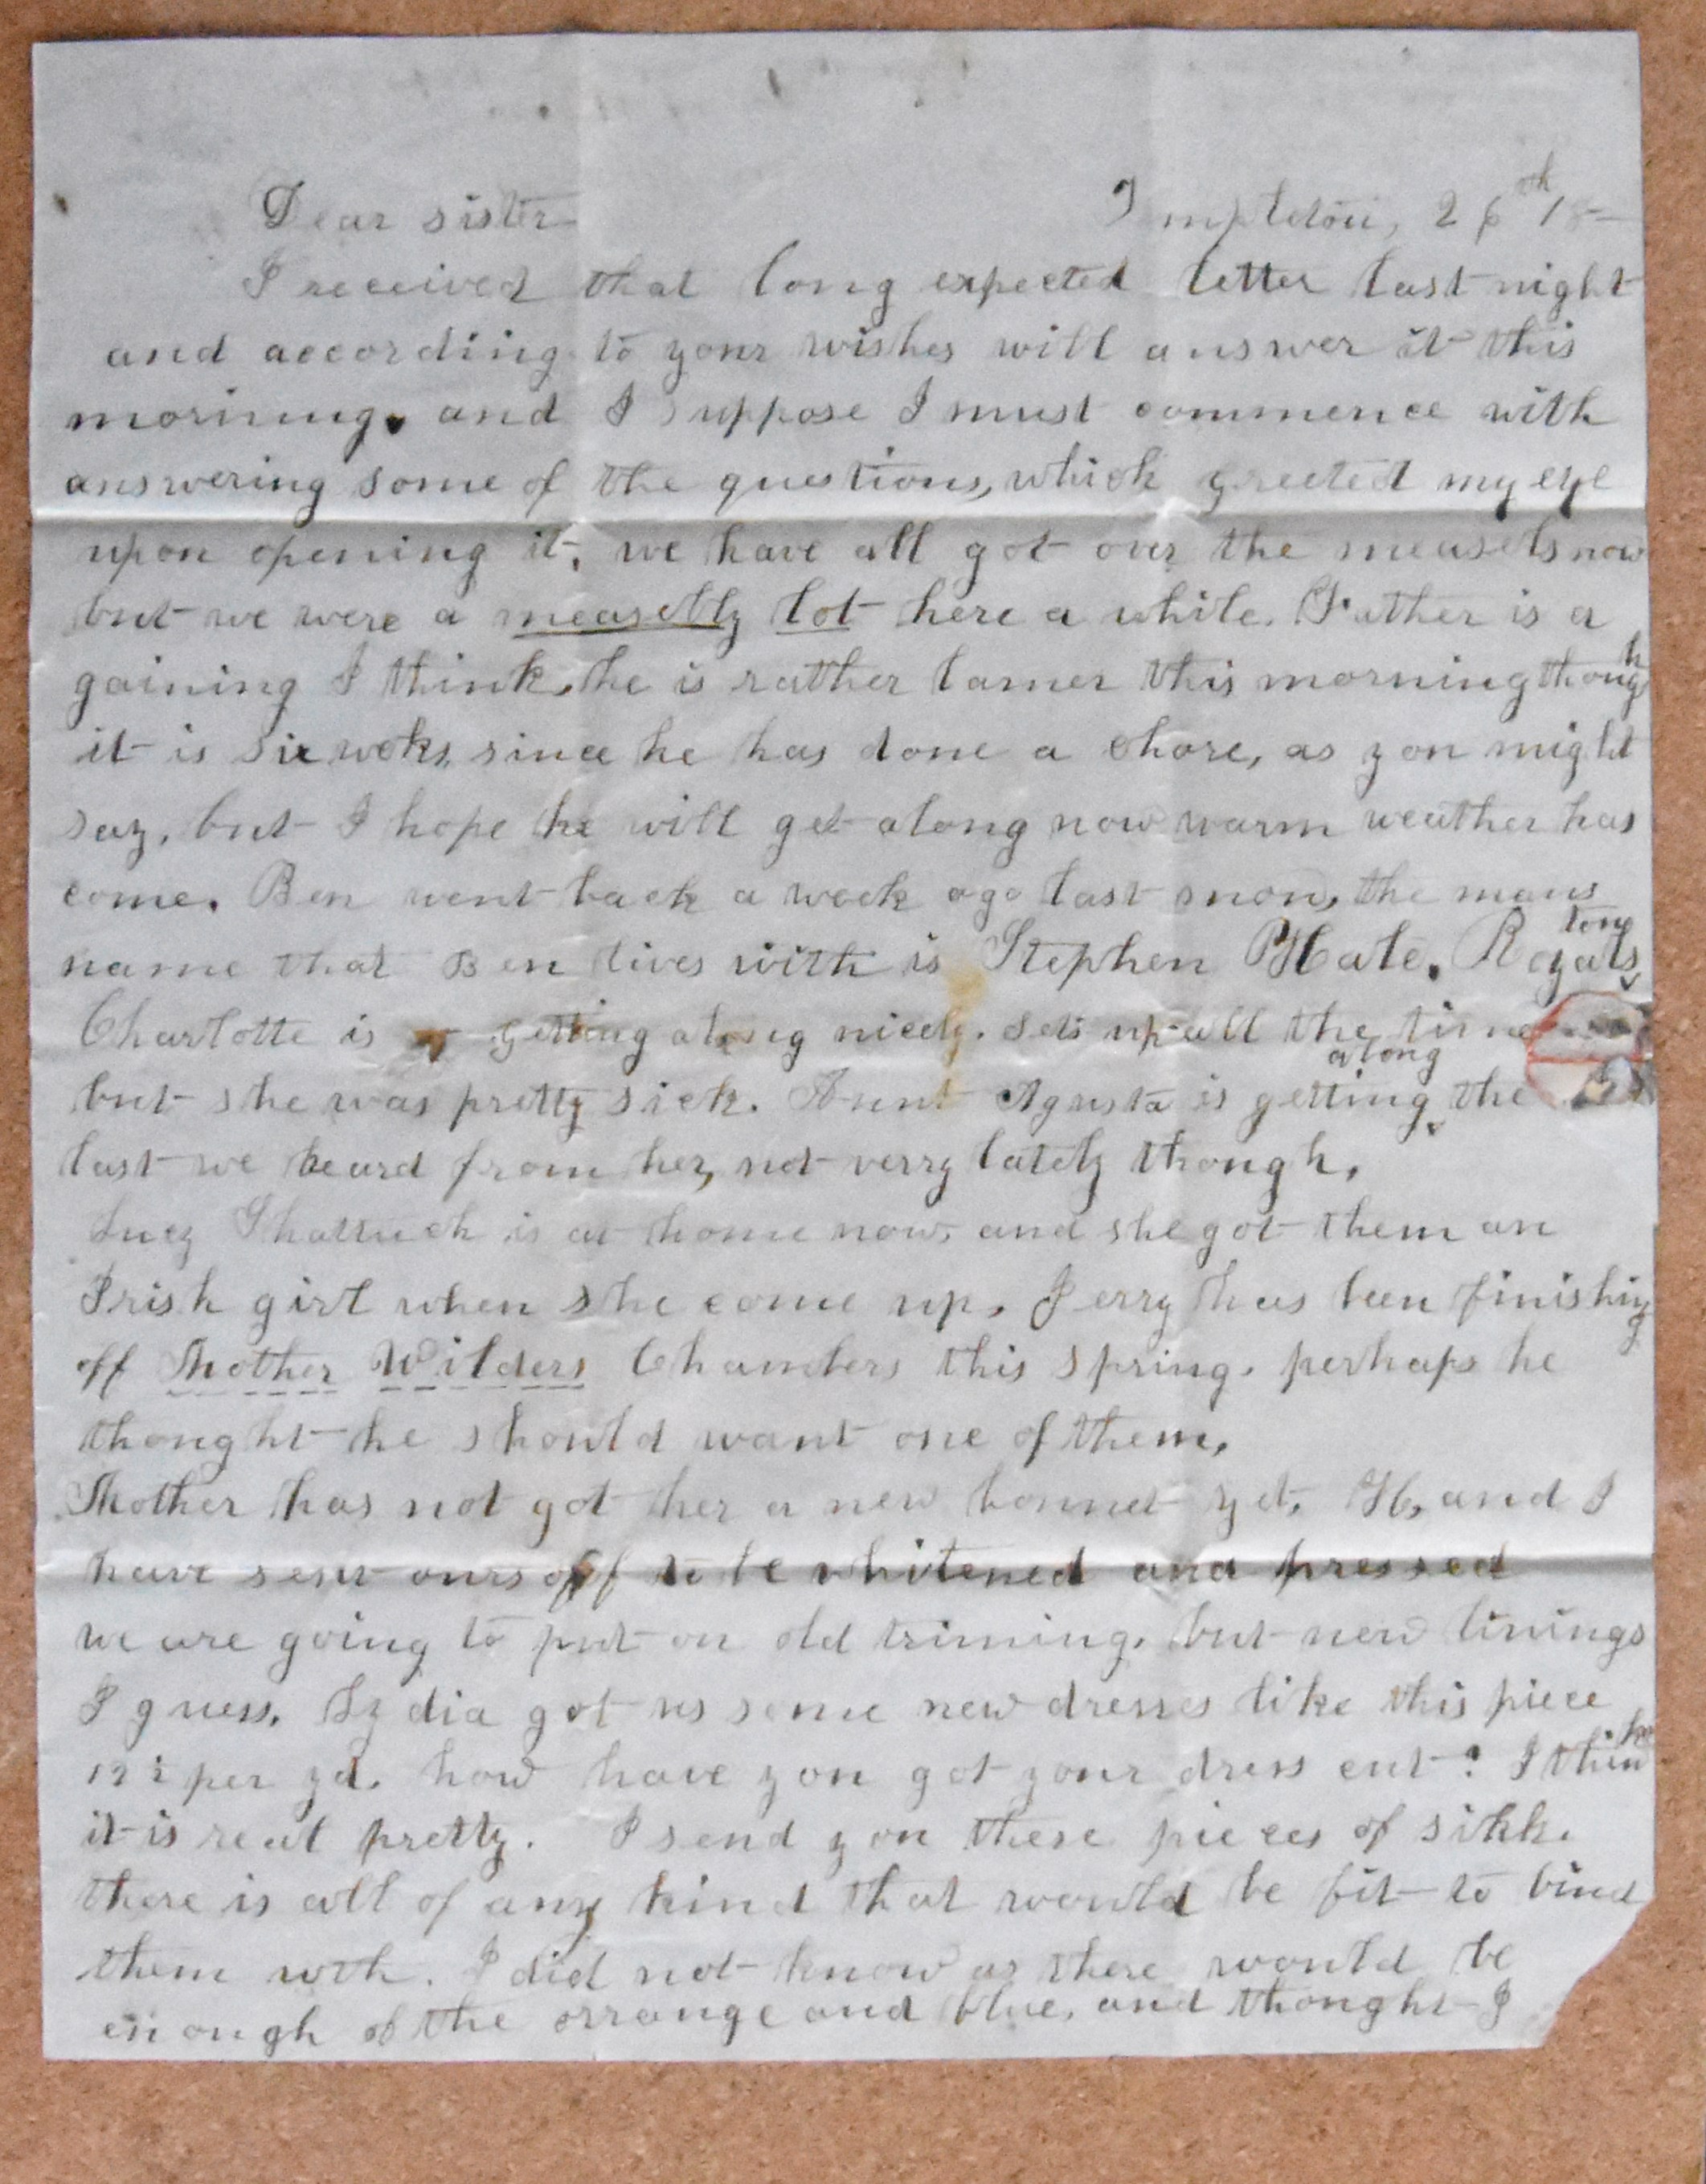 Dear sister Templeton, 26th 18
I received that long expected letter last night
and according to your wishes will answer it this
morning. and I suppose I must commence with
answering some of the questions, which greeted my eye
upon opening it. we have all got over the measels now
but we were a measelly lot here a while. Father is a
gaining I think, he is rather lamer this morning though
it is six weks, since he has done a chore, as you might
say, but I hope he will get along now warm weather has
come. Ben went back a week ago last mon, the mans
name that Ben lives with is Stephen Hale. Royals
tone
Charlotte is getting along nicely. sets up all the time
but she was pretty sick. Aunt Agusta is getting along the
last we heard from her, not verry lately though.
Lucy Shattuck is at home now, and she got them an
Irish girl when she come up. Jerry has been finishing
off Mother Wilders Chambers this spring. perhaps he
thought he should want one of them.
Mother has not got her a new bonnet yet. H, and I
have sent ours off to be whitened and pressed
we are going to put on old triming. but new linings
I guess. Lydia got us some new dresses like this piece
12½ per yd. how have you got your dress cut? I think
it is real pretty. I send you these pieces of silk.
there is all of any kind that would be fit to bind
them wth. I did not know as there would be
enough of the orrange and blue, and thought I